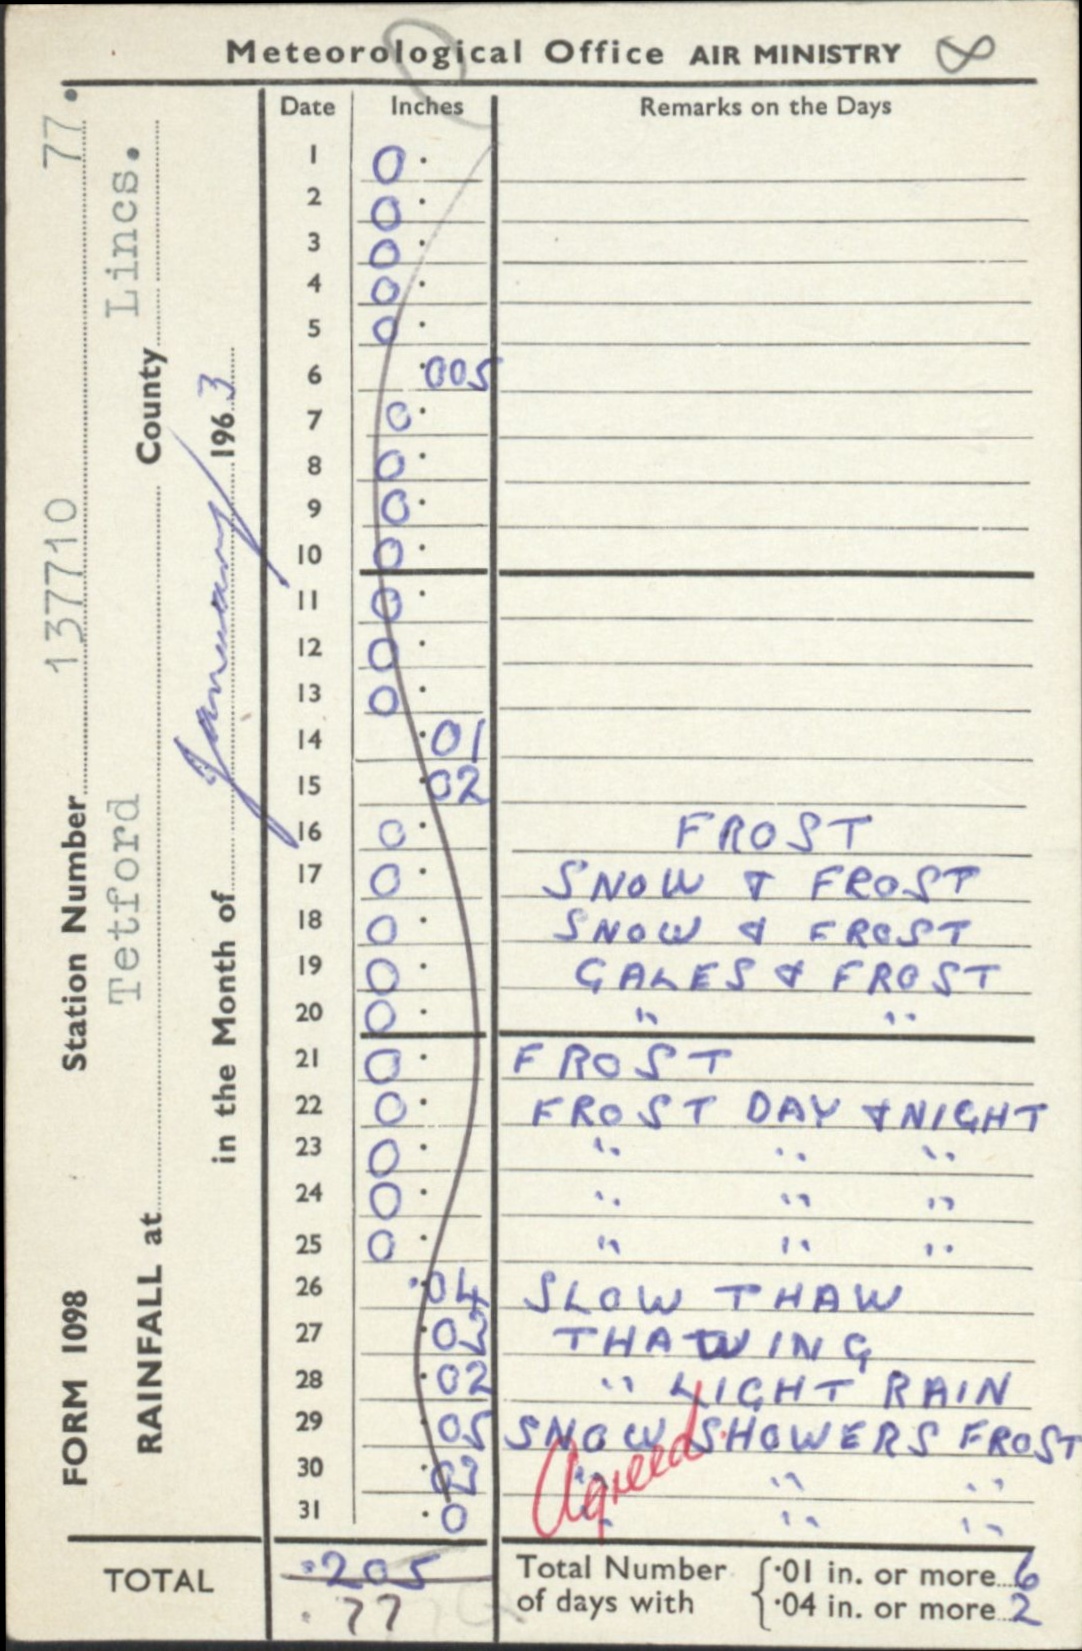 Meteorological Office AIR MINISTRY 8
FORM 1098 Station Number 137710 77.
RAINFALL at Tetford County Lincs.
in the Month of January 1963
Date Inches Remarks on the Days
1 0 ·
2 0 ·
3 0 ·
4 0 ·
5 0 ·
6 ·005
7 0 ·
8 0 ·
9 0 ·
10 0 ·
11 0 ·
12 0 ·
13 0 ·
14 ·01
15 ·02
16 0 · FROST
17 0 · SNOW & FROST
18 0 · SNOW & FROST
19 0 · GALES & FROST
20 0 · " "
21 0 · FROST
22 0 · FROST DAY & NIGHT
23 0 · " " "
24 0 · " " "
25 0 · " " "
26 ·04 SLOW THAW
27 ·02 THAWING
28 ·02 " LIGHT RAIN
29 ·05 SNOW SHOWERS FROST
30 " " "
31 · 0 " " "
Agreed
TOTAL ·205
.77
Total Number of days with { ·01 in. or more 6
·04 in. or more 2